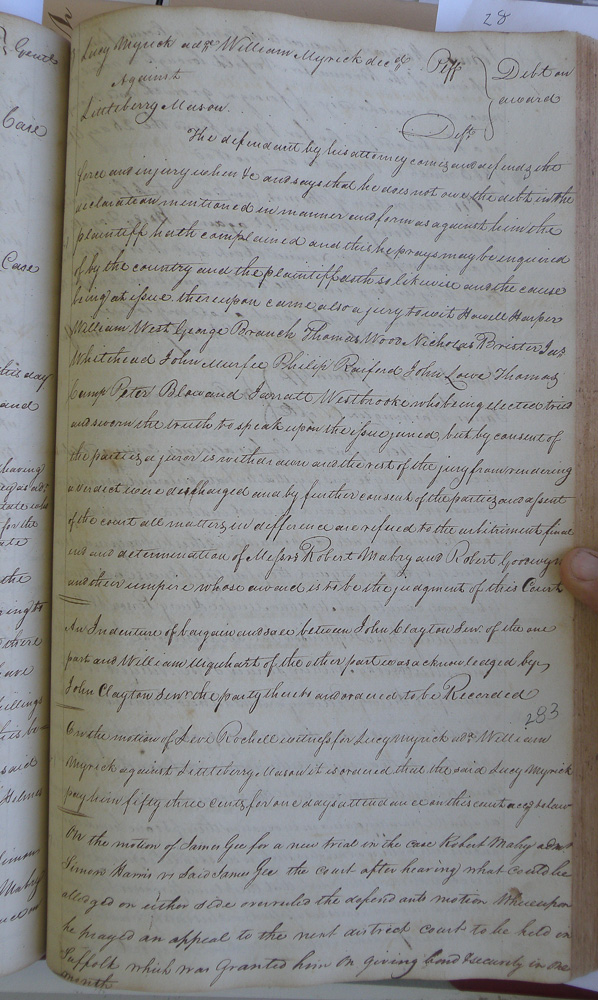 28
Lucy Myrick adx William Myrick decd. Plff
Against
Debt on award
Littleberry Mason. Deft
The defendant by his attorney comes and defends the
force and injury when &c and says that he does not owe the debt in the
declaration mentioned in manner and form as against him the
plaintiff hath complained and this he prays may be enquired
of by the country and the plaintiff doth so likewise and the cause
being at issue thereupon came also a jury to wit Howell Harper
William West George Branch Thomas Wood Nicholas Brister Jas
Whitehead John Murfee Philip Raiford John Lowe Thomas
Camp Peter Blow and Jarratt Westbrooke who being elected tried
and sworn the truth to speak upon the issue joined, but by consent of
the parties a juror is withdrawn and the rest of the jury from rendering
a verdict were discharged and by further consent of the parties and assent
of the court all matters in difference are refered to the arbitriment final
end and determination of Messrs Robert Mabry and Robert Goodwyn
and their umpire whose award is to be the judgment of this Court
An Indenture of bargain and sale between John Clayton Senr. of the one
part and William Urquhart of the other part was acknowledged by
John Clayton Senr the party thereto and ordered to be Recorded
283
On the motion of Levi Rochell witness for Lucy Myrick adx William
Myrick against Littleberry Mason it is ordered that the said Lucy Myrick
pay him fifty three cents for one days attendance on this court accg to law
On the motion of James Gee for a new trial in the case Robert Mabry admr
Simon Harris vs said James Gee the court after hearing what could be
alledged on either side overruled the defendants motion Whereupon
he prayed an appeal to the next district court to be held in
Suffolk which was Granted him on giving bond & security in one
month